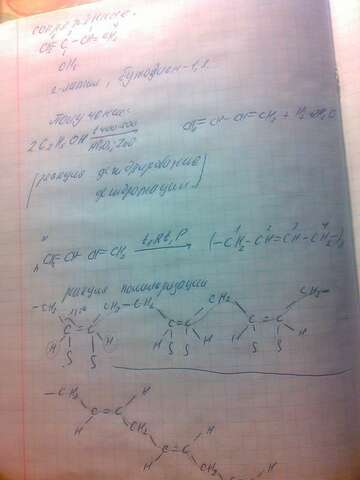 сопряженные.
CH₂ = C – CH = CH₂
CH₃
2-метил, бутадиен-1,3
Получение:
2C₂H₅OH t 400-500 Al₂O₃; ZnO CH₂=CH-CH=CH₂ + H₂ + H₂O
реакция дегидрирование
дегидротации
n CH₂=CH CH=CH₂ t, kt, P (-CH₂-CH=CH-CH₂-)
реакция полимеризации
-CH₂ CH₂-CH₂ CH₂ CH₂-
C=C C=C C=C
H H H H H H
S S S S S S
-CH₂ H
C=C H
H CH₂ C=C
H CH₂